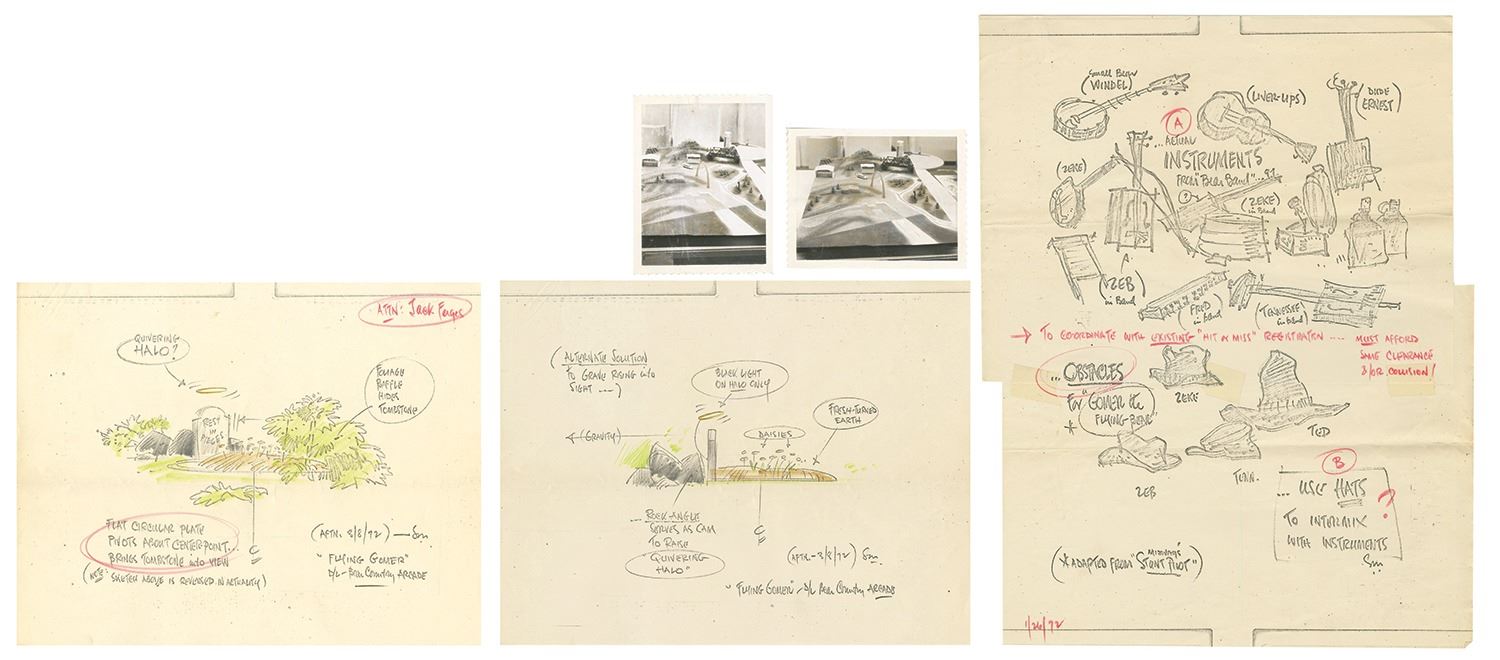 ATTN: Jack Ferges
QUIVERING
HALO?
FOLIAGE
BAFFLE
HIDES
TOMBSTONE
REST
IN
PIECES
FLAT CIRCULAR PLATE
PIVOTS ABOUT CENTERPOINT...
BRINGS TOMBSTONE into VIEW
(NOTE: SKETCH ABOVE IS REVERSED IN ACTUALITY)
(AFTN. 3/8/72)
"FLYING GOMER"
D/L - Bear Country ARCADE
(ALTERNATE SOLUTION
TO GRAVE RISING into
SIGHT ----)
BLACK LIGHT
ON HALO ONLY
FRESH-TURNED
EARTH
(GRAVITY)
DAISIES
... ROCK-ANGLE
SERVES AS CAM
TO RAISE
QUIVERING
HALO"
(AFTN. - 3/8/72)
"FLYING GOMER" - D/L Bear Country ARCADE
(Small Bear
WINDEL)
(LIVER-LIPS)
(DUDE
ERNEST)
A
... ACTUAL
INSTRUMENTS
FROM "Bear Band"...
(ZEKE)
?
(ZEKE
in Band)
(ZEB
in Band)
(FRED
in band)
(TENNESSEE
in band)
→ TO COORDINATE WITH EXISTING "HIT or MISS" REGISTRATION .... MUST AFFORD
SAME CLEARANCE
&/OR COLLISION!
... OBSTACLES
For "GOMER the
FLYING-BEAR"
*
ZEKE
TED
ZEB
TENN.
B
... USE HATS
TO INTERMIX
WITH INSTRUMENTS
?
(* ADAPTED FROM MIDWAY'S "STUNT PILOT")
1/26/72